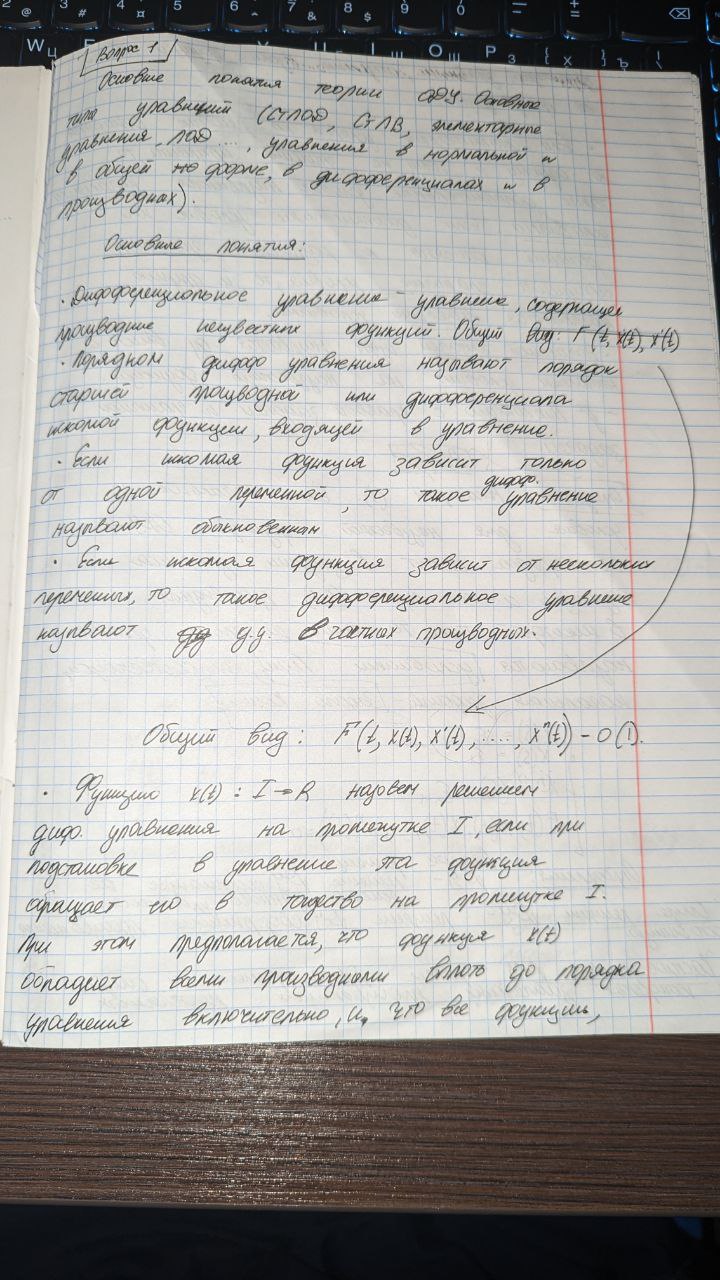 Вопрос 1
Основные понятия теории ОДУ. Основные
типы уравнений (СтЛОД, СтЛВ, элементарные
уравнения, ЛОД ...., уравнения в нормальной и
в общей форме, в дифференциалах и в
производных).
Основные понятия:
· Дифференциальное уравнение - уравнение, содержащее
производные неизвестных функций. Общий вид: F(t, x(t), x'(t)
· Порядком дифф уравнения называют порядок
старшей производной или дифференциала
искомой функции, входящей в уравнение.
· Если искомая функция зависит только
от одной переменной, то такое дифф. уравнение
называют обыкновенным
· Если искомая функция зависит от нескольких
переменных, то такое дифференциальное уравнение
называют д.у. в частных производных.
Общий вид: F(t, x(t), x'(t), ...., xⁿ(t)) = 0 (1).
· Функцию x(t) : I → R назовем решением
диф. уравнения на промежутке I, если при
подстановке в уравнение эта функция
обращает его в тождество на промежутке I.
При этом предполагается, что функция x(t)
обладает всеми производными вплоть до порядка
уравнения включительно, и, что все функции,